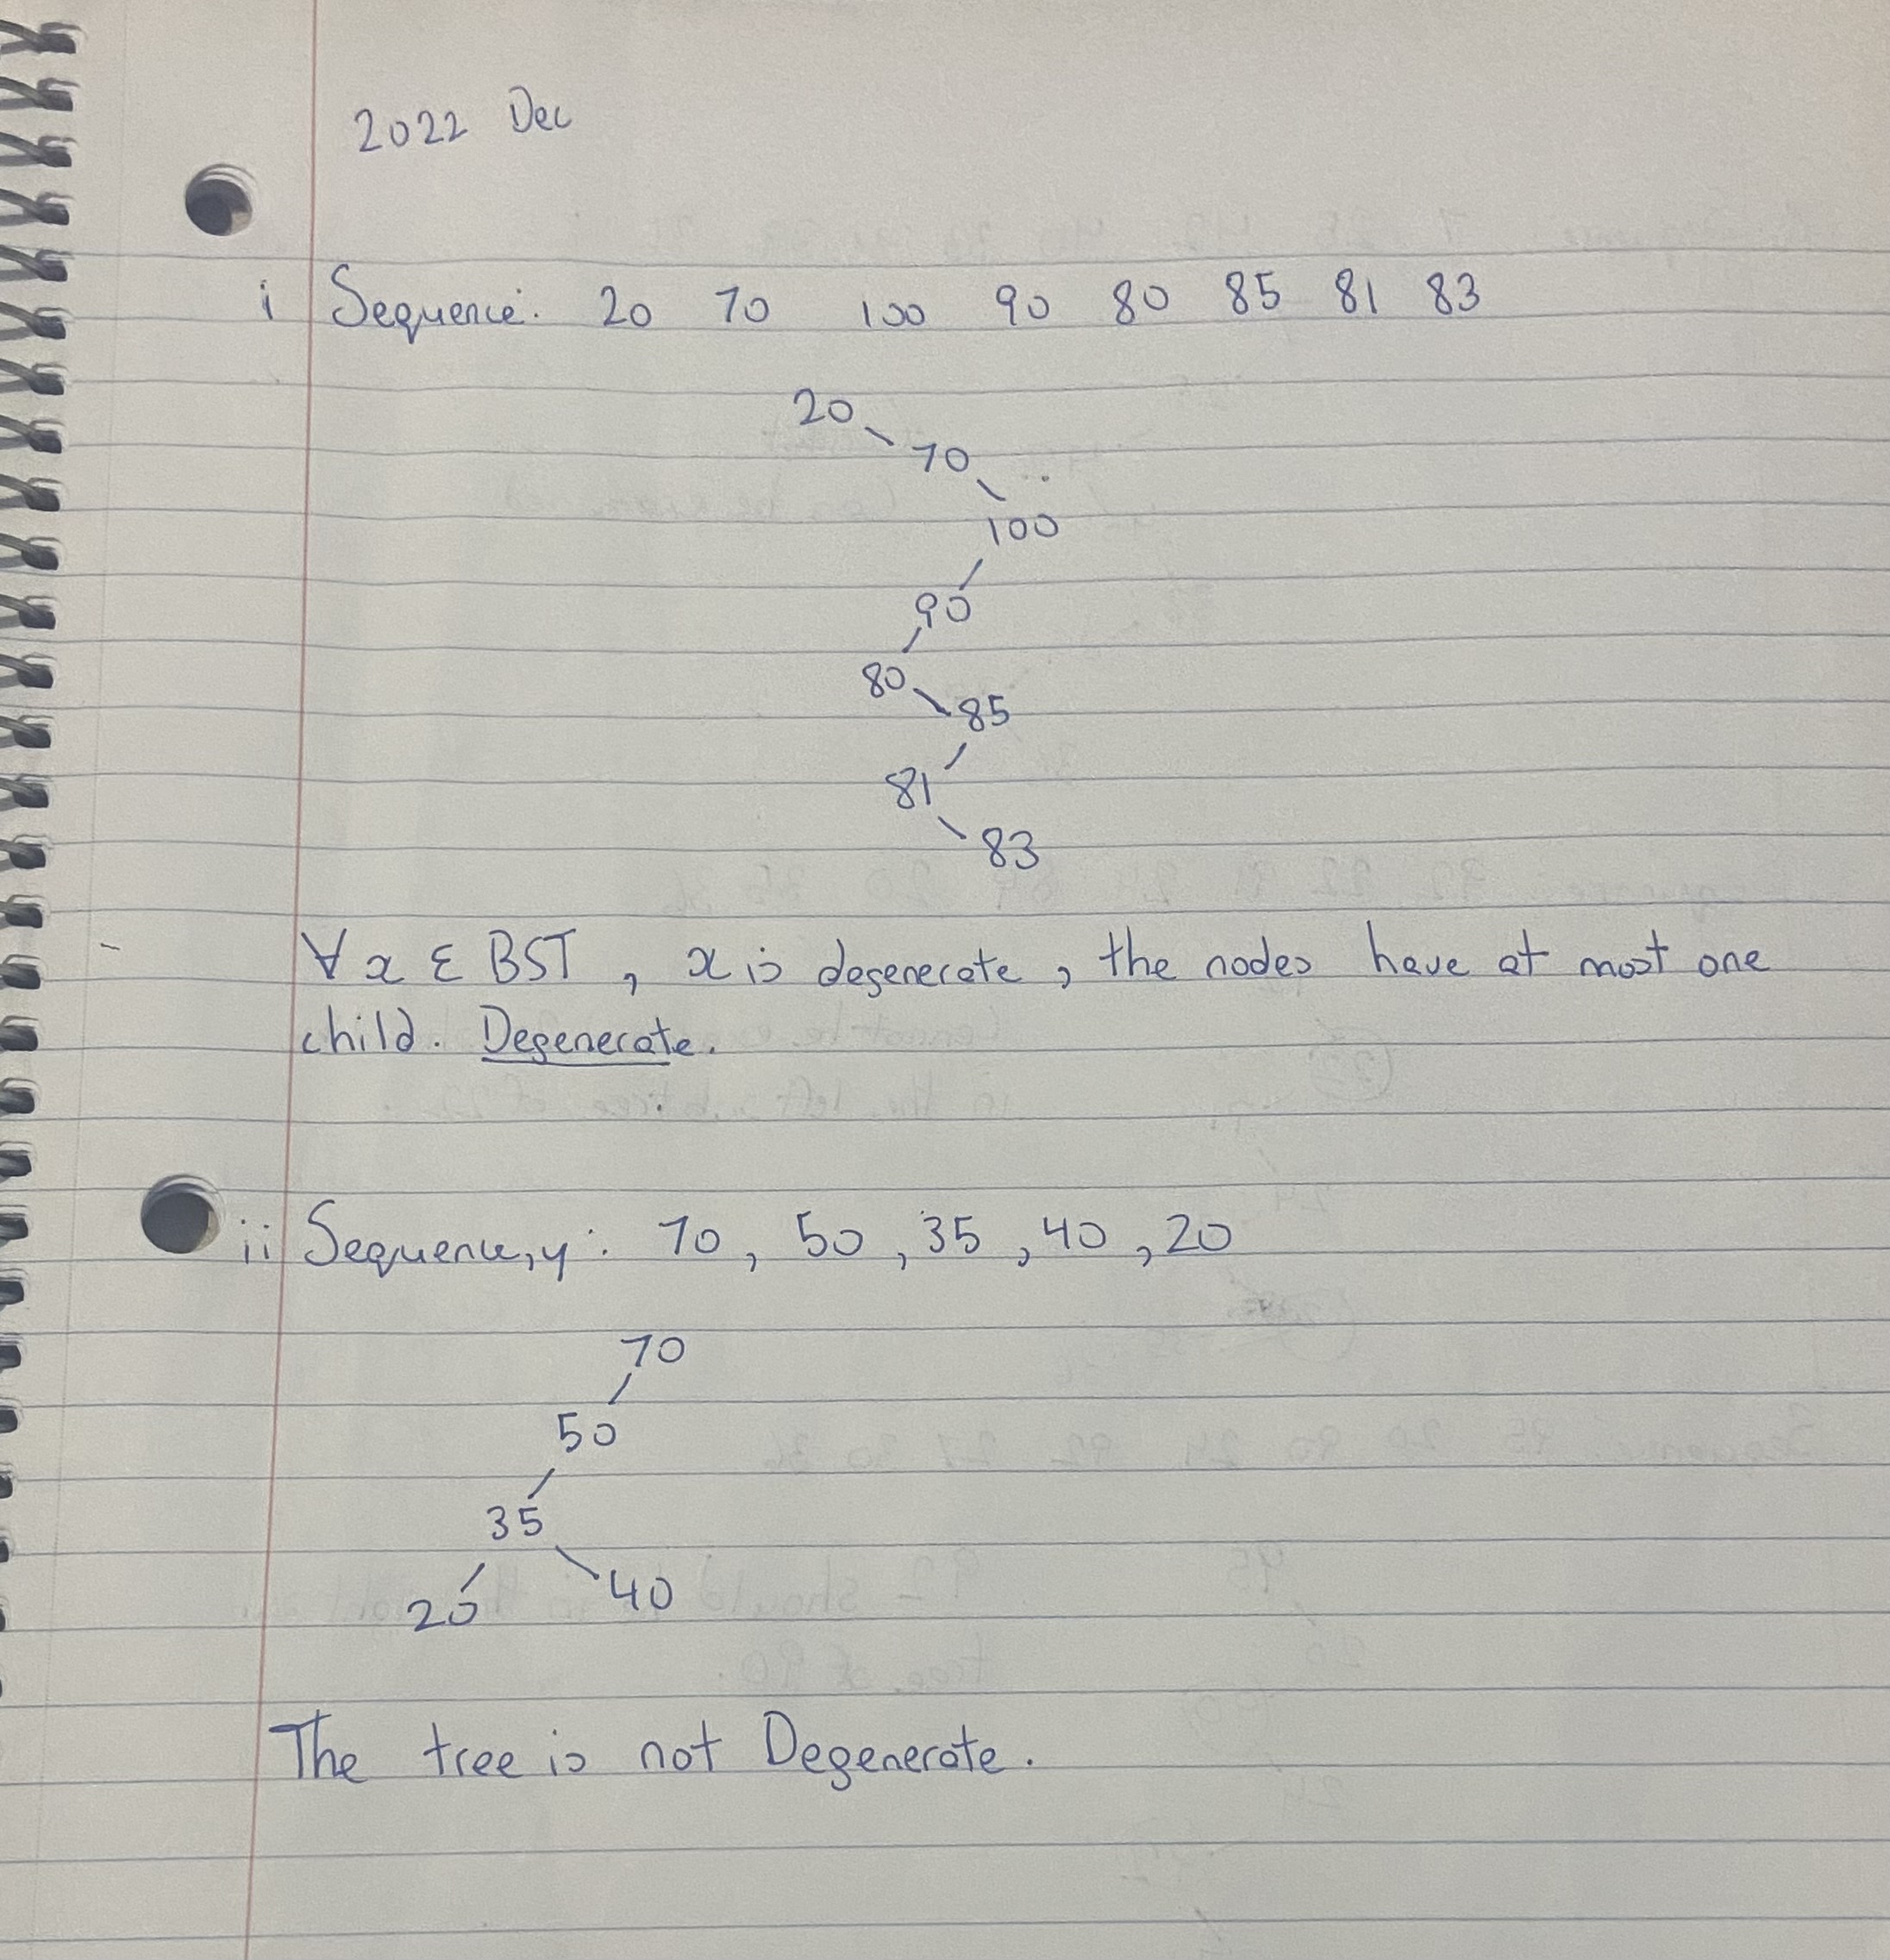 2022 Dec
i Sequence: 20 70 100 90 80 85 81 83
20
70
100
90
80
85
81
83
∀ x ε BST, x is degenerate, the nodes have at most one
child. Degenerate.
ii Sequence, y: 70, 50, 35, 40, 20
70
50
35
20 40
The tree is not Degenerate.